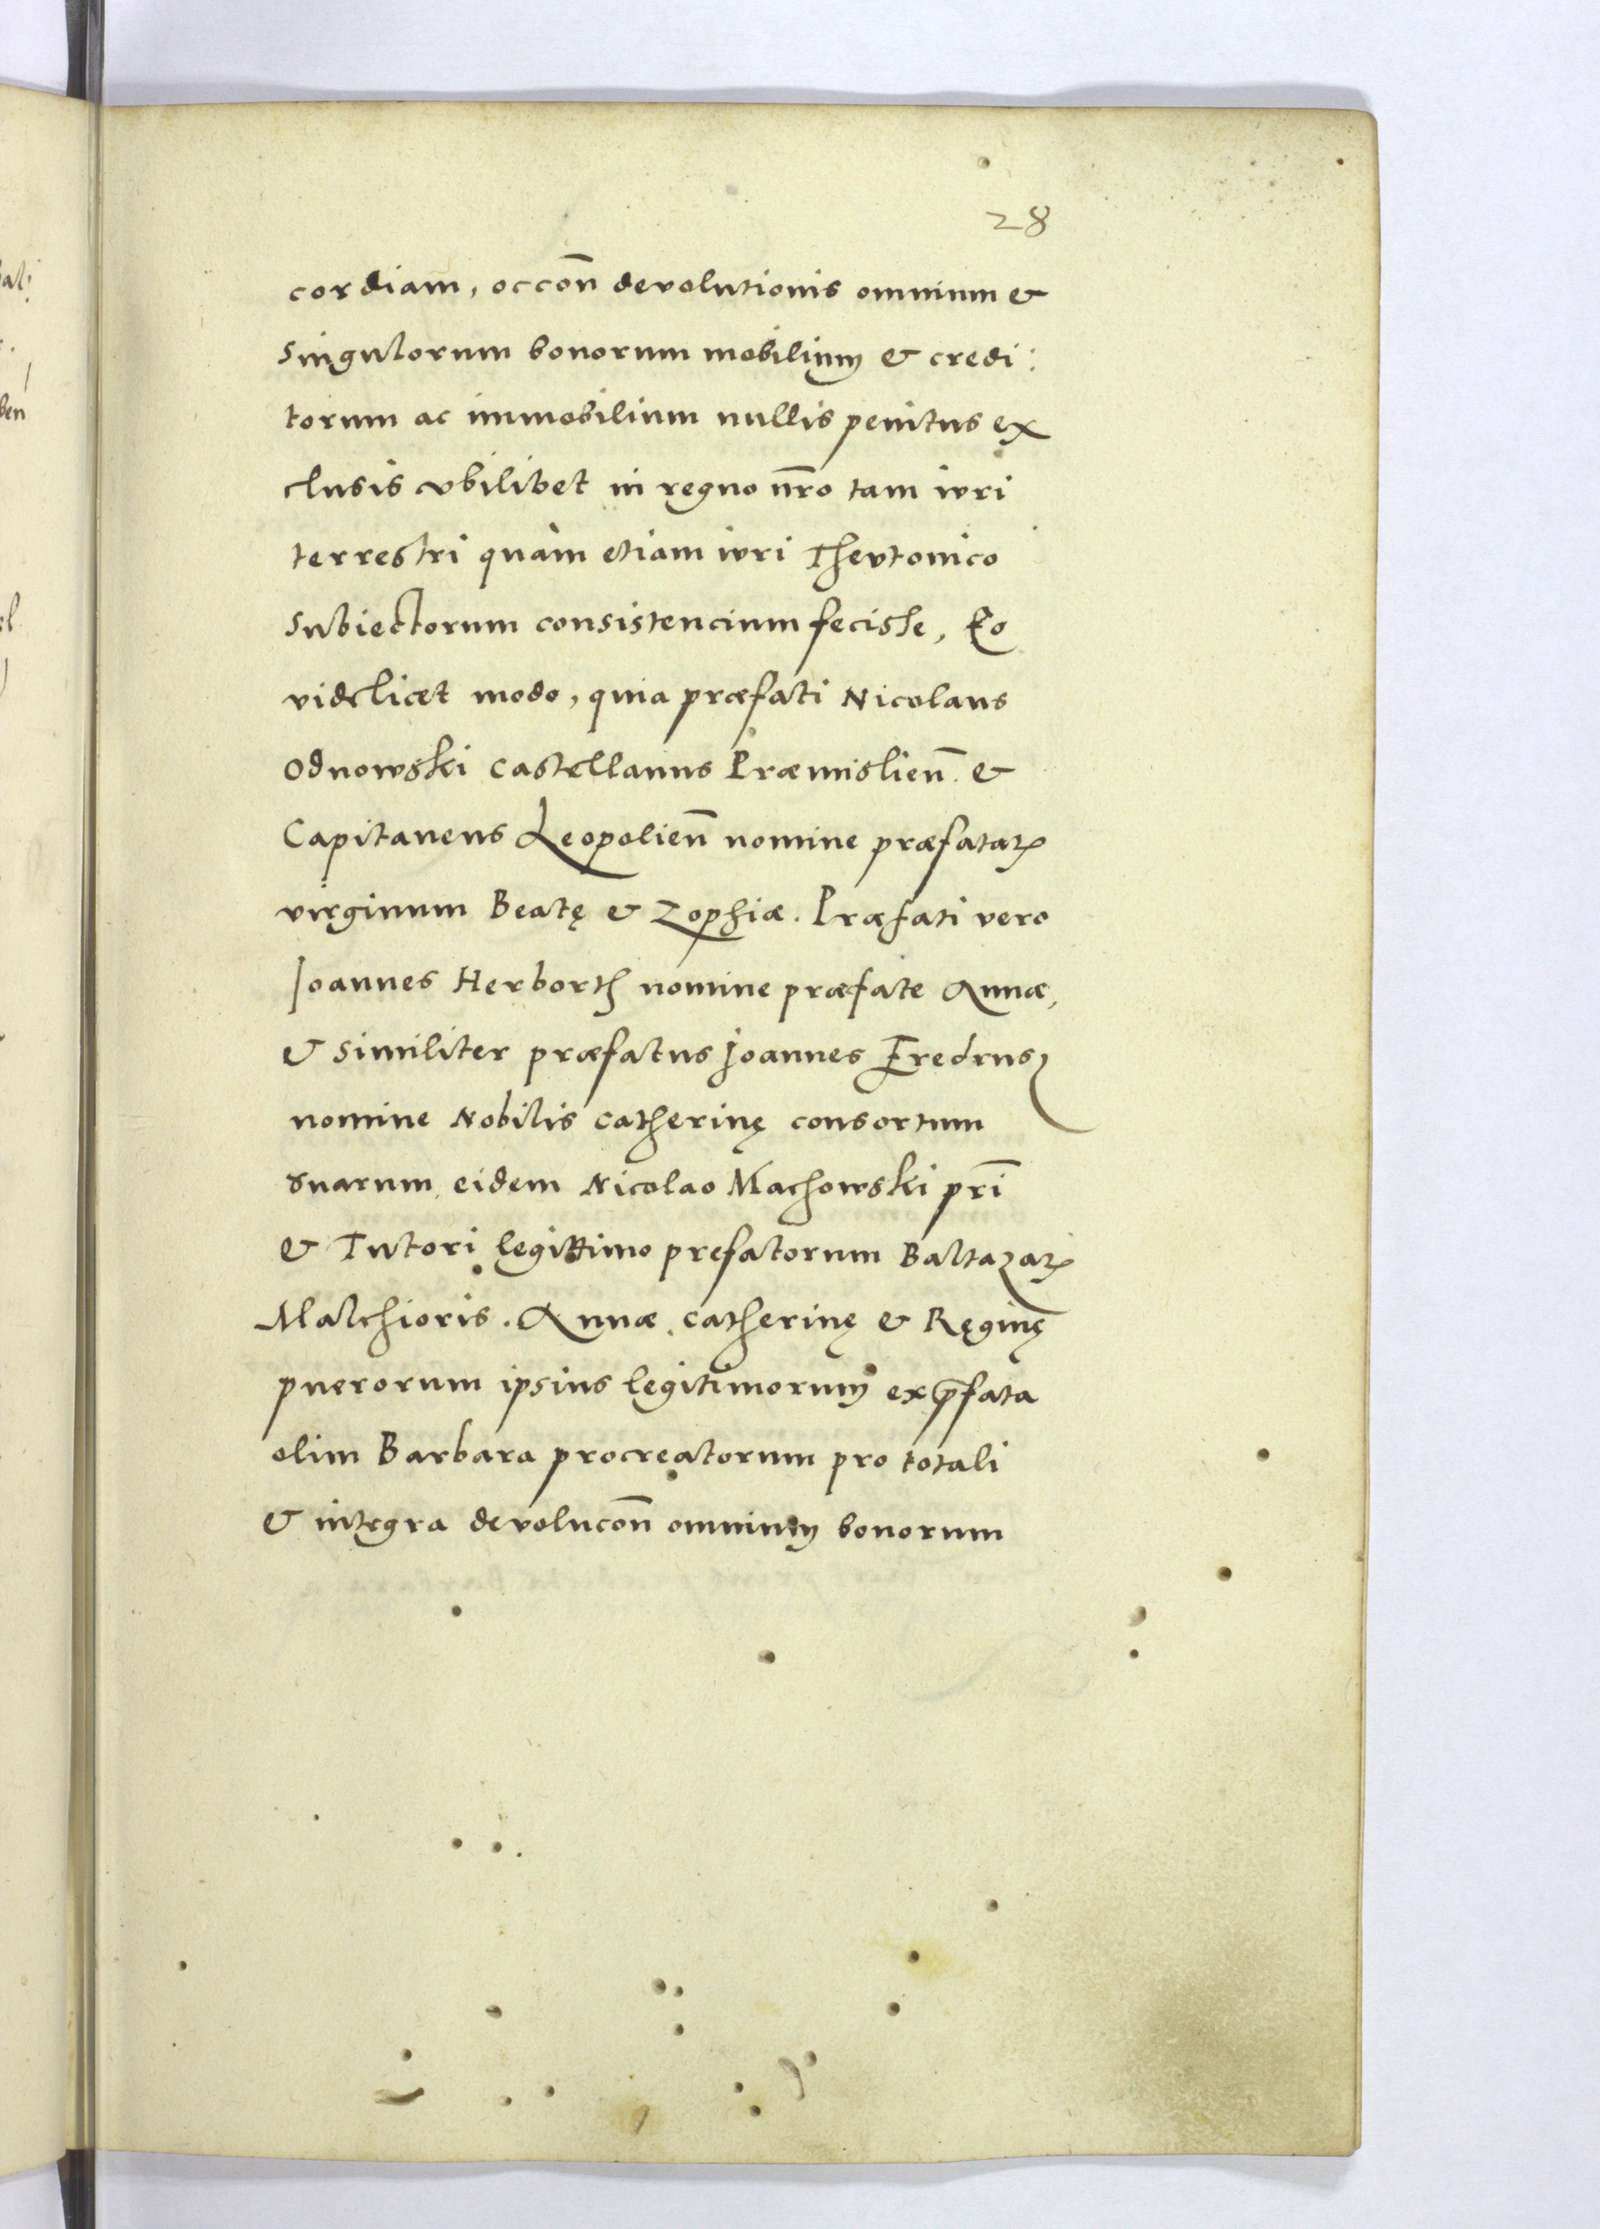 28
cordiam, occõn devolutionis omnium &
singulorum bonorum mobilium & credi:
torum ac immobilium nullis penitus ex
clusis vbilibet in regno nr̃o tam iuri
terrestri quàm etiam iuri Theutonico
subiectorum consistencium fecisse, Eo
videlicet modo, quia præfati Nicolaus
Odnowski Castellanus Præmislieñ. &
Capitaneus Leopolieñ nomine præfataꝝ
virginum Beatę & Zophiæ. Præfati vero
Joannes Herborth nomine præfate Annæ,
& similiter præfatus Joannes Fredrus
nomine Nobilis Catherinę consortum
suarum, eidem Nicolao Machowski pr̃i
& Tutori legittimo prefatorum Baltazaꝝ
Malchioris. Annæ, Catherinę & Ręginę
puerorum ipsius legitimorum ex p̃fata
olim Barbara procreatorum pro totali
& integra devolucõn omnium bonorum